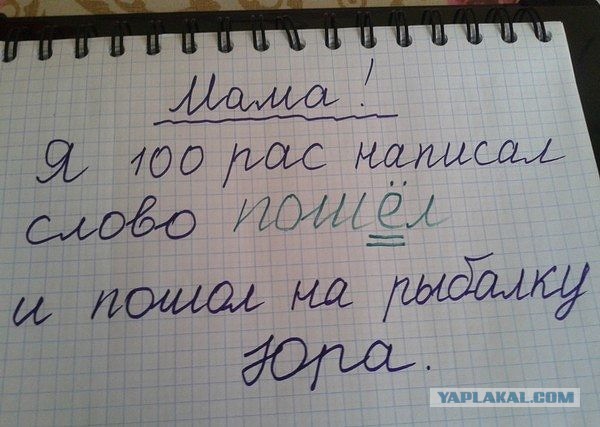 Мама!
Я 100 рас написал
слово пошёл
и пошол на рыбалку
Юра.
YAPLAKAL.COM